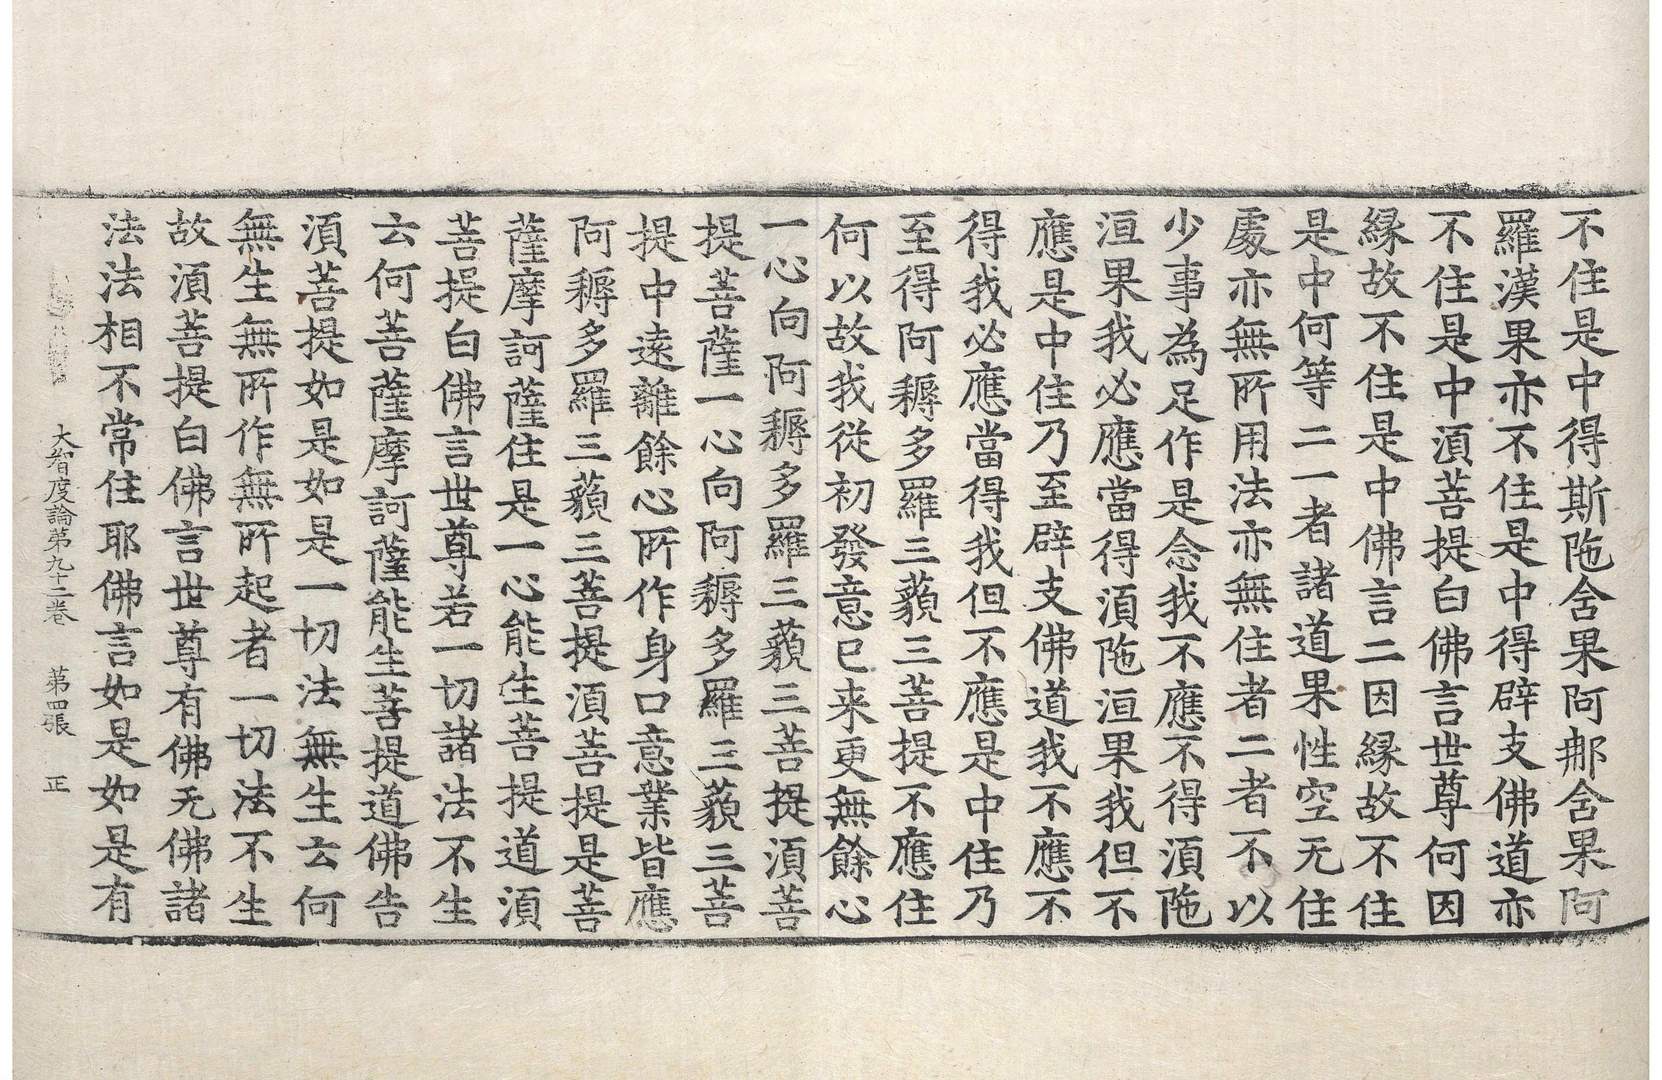 不住是中得斯陁含果阿那含果阿
羅漢果亦不住是中得辟支佛道亦
不住是中湏菩提白佛言世尊何因
緣故不住是中佛言二因緣故不住
是中何等二一者諸道果性空无住
處亦無所用法亦無住者二者不以
少事為足作是念我不應不得湏陁
洹果我必應當得湏陁洹果我但不
應是中住乃至辟支佛道我不應不
得我必應當得我但不應是中住乃
至得阿耨多羅三藐三菩提不應住
何以故我從初發意已来更無餘心
一心向阿耨多羅三藐三菩提湏菩
提菩薩一心向阿耨多羅三藐三菩
提中遠離餘心所作身口意業皆應
阿耨多羅三藐三菩提湏菩提是菩
薩摩訶薩住是一心能生菩提道湏
菩提白佛言世尊若一切諸法不生
云何菩薩摩訶薩能生菩提道佛告
湏菩提如是如是一切法無生云何
無生無所作無所起者一切法不生
故湏菩提白佛言世尊有佛无佛諸
法法相不常住耶佛言如是如是有
大智度論第九十二卷 第四張 正